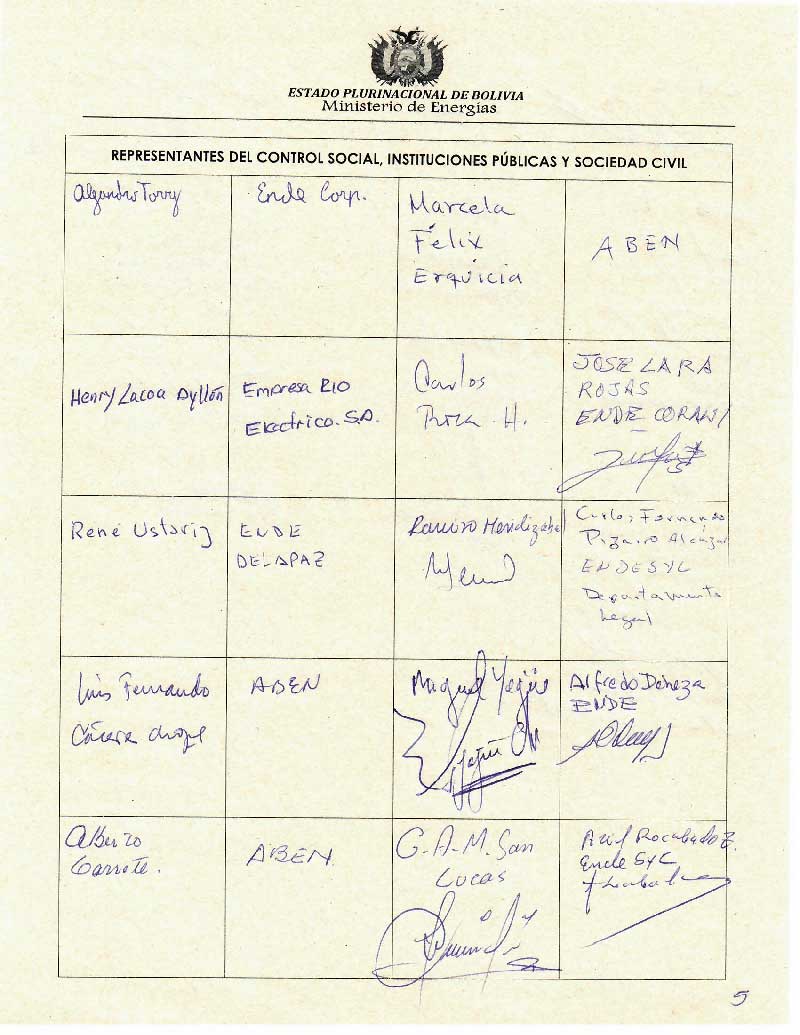 ESTADO PLURINACIONAL DE BOLIVIA
Ministerio de Energías
REPRESENTANTES DEL CONTROL SOCIAL, INSTITUCIONES PÚBLICAS Y SOCIEDAD CIVIL
Alejandro Torry
Ende Corp.
Marcela
Félix
Erquicia
ABEN
Henry Lacoa Ayllón
Empresa RIO
Electrico. S.A.
Carlos
H.
JOSE LARA
ROJAS
ENDE CORANI
René Ustariz
ENDE
DELAPAZ
Ramiro Mendizabal
Carlos Fernando
Pizarro Alcázar
ENDESYC
Departamento
Legal
Luis Fernando
Cácere choque
ABEN
Miguel Yagüe
Alfredo Deheza
ENDE
Alberzo
Garrote.
ABEN.
G.A.M. San
Lucas
Ariel Rocabado Z.
Ende SyC
5